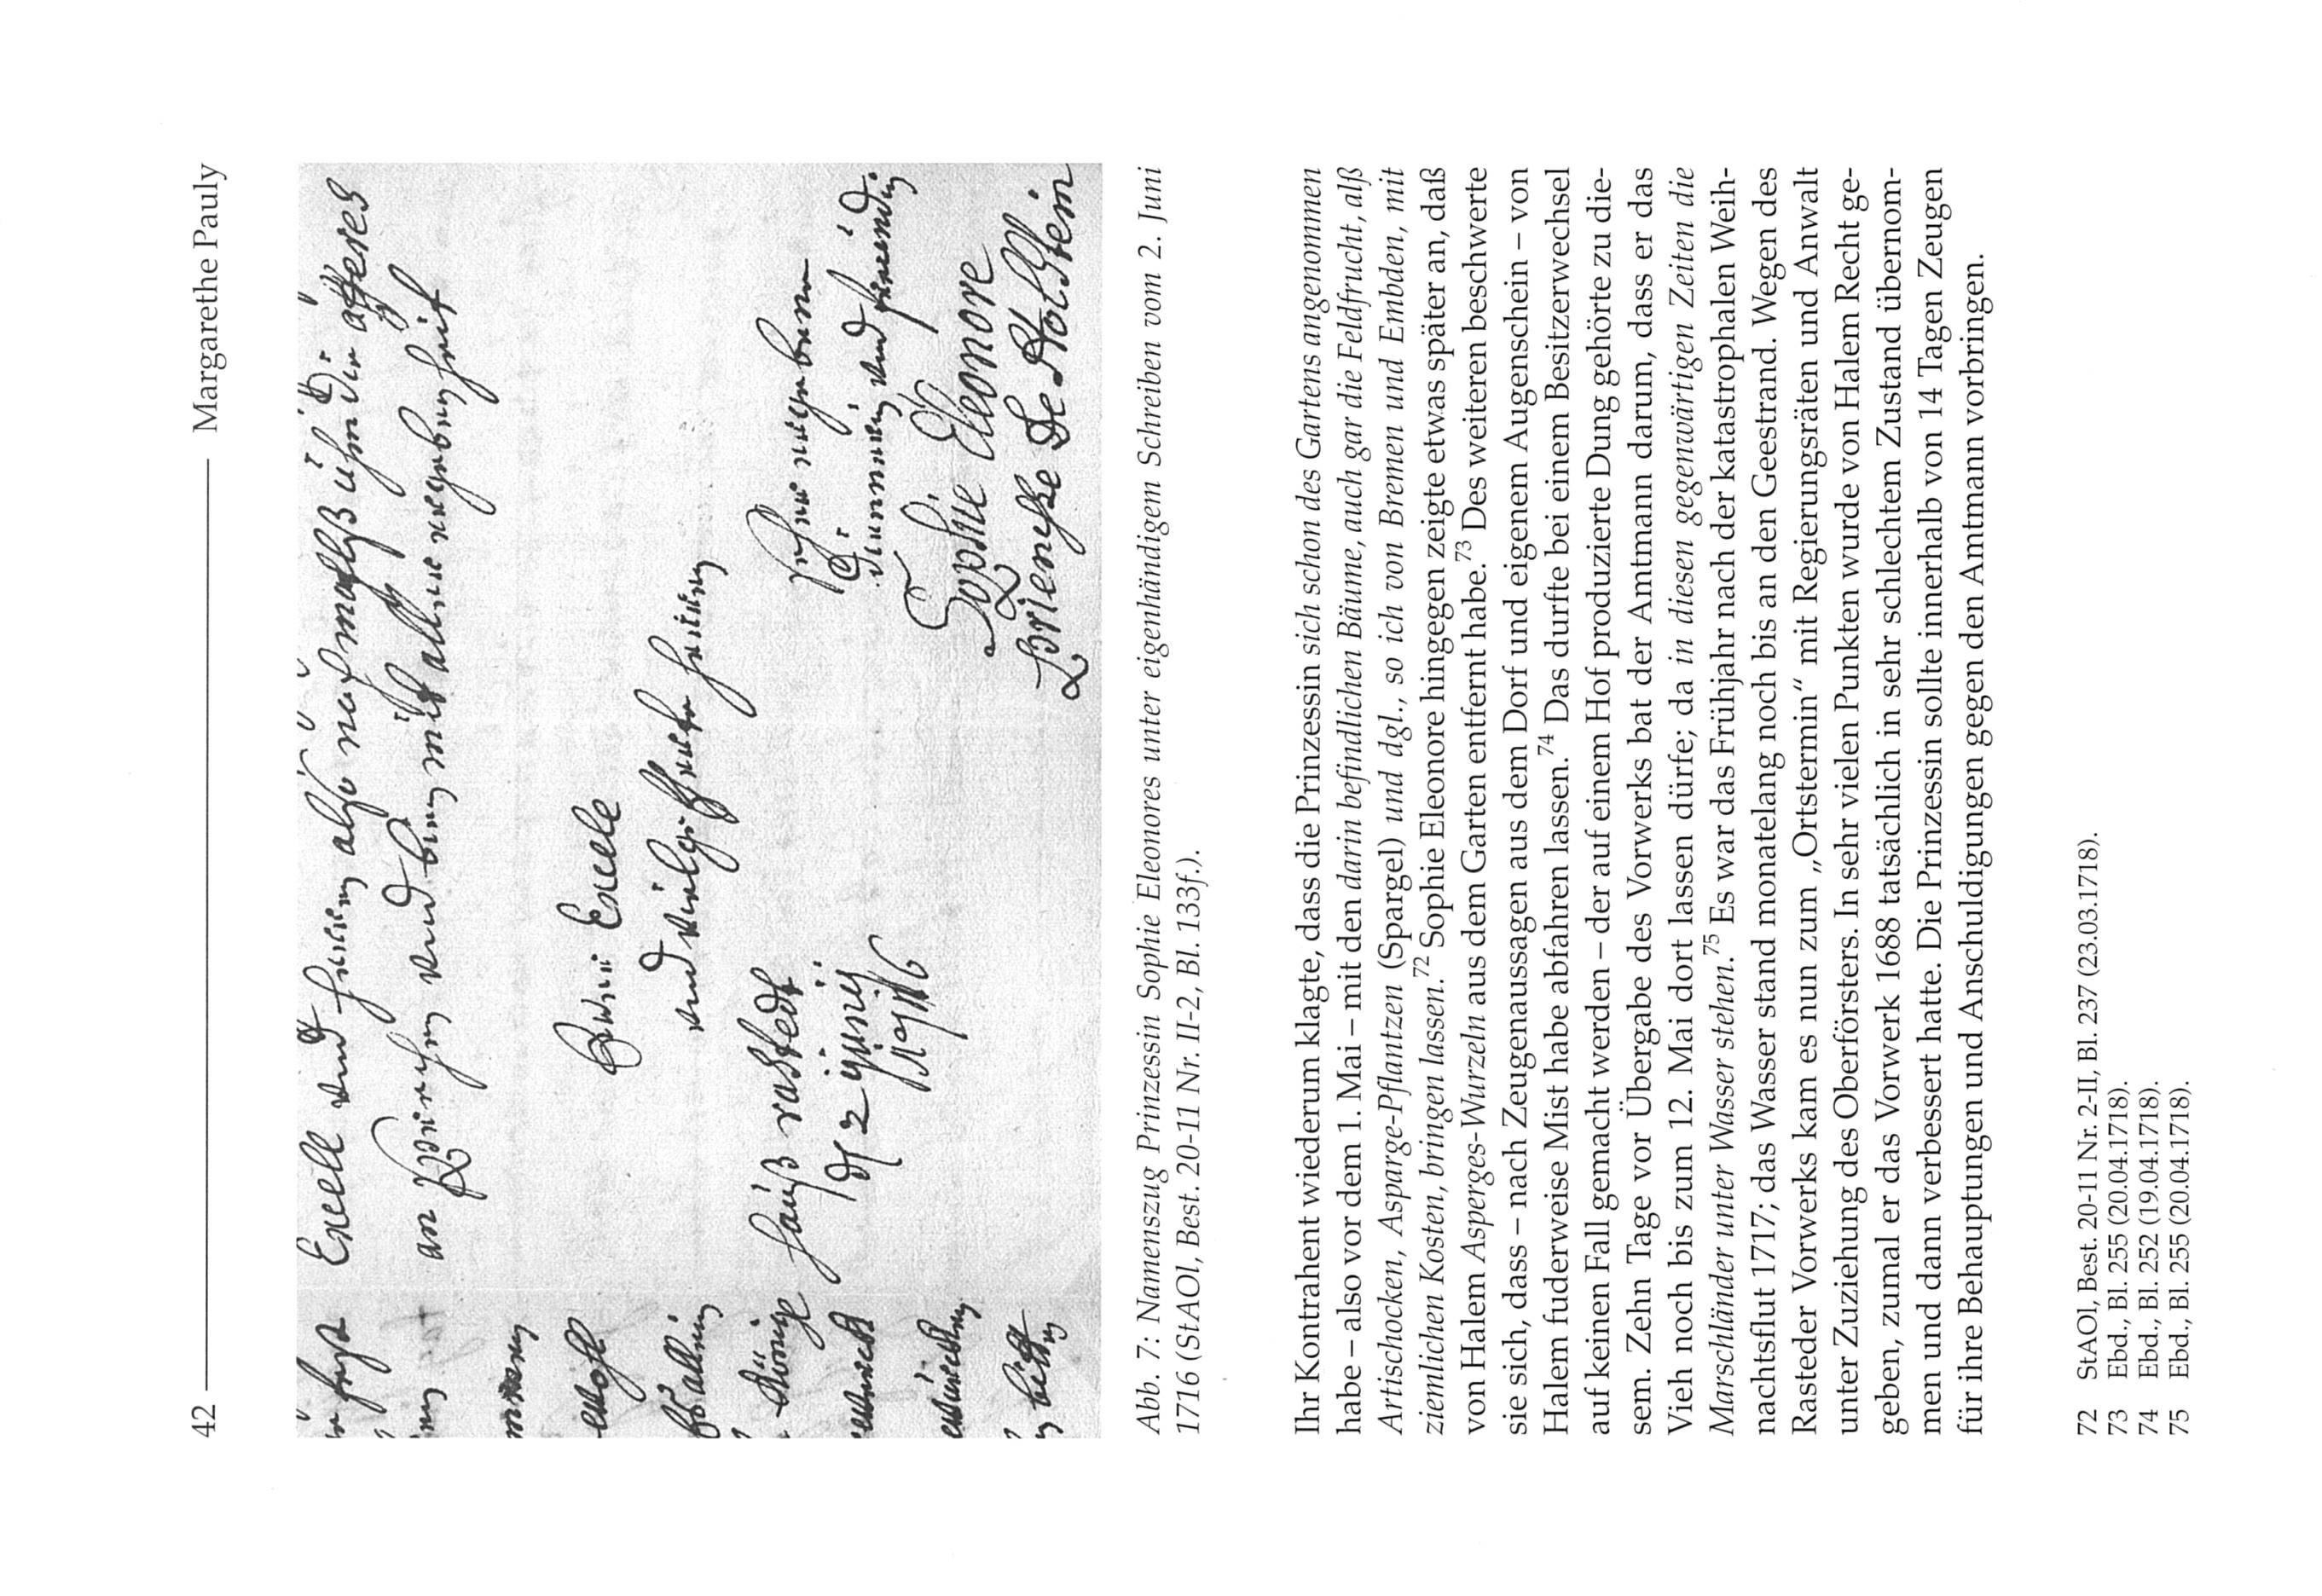 42 Margarethe Pauly
Excell und
an
Euer Excele
und
hauß rastedt
d 2 junii
1716
Sophie Eleonore
Princesse De Holstein
Abb. 7: Namenszug Prinzessin Sophie Eleonores unter eigenhändigem Schreiben vom 2. Juni
1716 (StAOl, Best. 20-11 Nr. II-2, Bl. 133f.).
Ihr Kontrahent wiederum klagte, dass die Prinzessin sich schon des Gartens angenommen
habe – also vor dem 1. Mai – mit den darin befindlichen Bäume, auch gar die Feldfrucht, alß
Artischocken, Asparge-Pflantzen (Spargel) und dgl., so ich von Bremen und Embden, mit
ziemlichen Kosten, bringen lassen.72 Sophie Eleonore hingegen zeigte etwas später an, daß
von Halem Asperges-Wurzeln aus dem Garten entfernt habe.73 Des weiteren beschwerte
sie sich, dass – nach Zeugenaussagen aus dem Dorf und eigenem Augenschein – von
Halem fuderweise Mist habe abfahren lassen.74 Das durfte bei einem Besitzerwechsel
auf keinen Fall gemacht werden – der auf einem Hof produzierte Dung gehörte zu die-
sem. Zehn Tage vor Übergabe des Vorwerks bat der Amtmann darum, dass er das
Vieh noch bis zum 12. Mai dort lassen dürfe; da in diesen gegenwärtigen Zeiten die
Marschländer unter Wasser stehen.75 Es war das Frühjahr nach der katastrophalen Weih-
nachtsflut 1717; das Wasser stand monatelang noch bis an den Geestrand. Wegen des
Rasteder Vorwerks kam es nun zum „Ortstermin“ mit Regierungsräten und Anwalt
unter Zuziehung des Oberförsters. In sehr vielen Punkten wurde von Halem Recht ge-
geben, zumal er das Vorwerk 1688 tatsächlich in sehr schlechtem Zustand übernom-
men und dann verbessert hatte. Die Prinzessin sollte innerhalb von 14 Tagen Zeugen
für ihre Behauptungen und Anschuldigungen gegen den Amtmann vorbringen.
72 StAOl, Best. 20-11 Nr. 2-II, Bl. 237 (23.03.1718).
73 Ebd., Bl. 255 (20.04.1718).
74 Ebd., Bl. 252 (19.04.1718).
75 Ebd., Bl. 255 (20.04.1718).